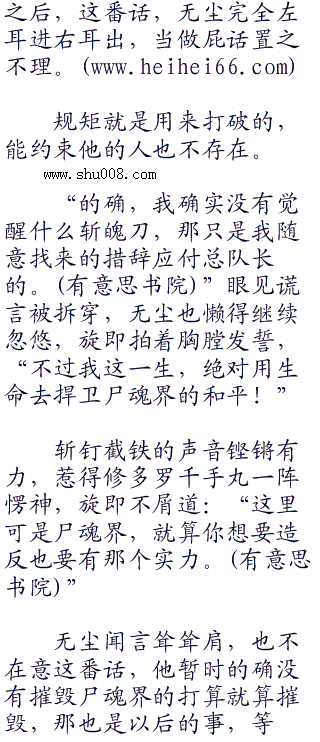 之后，这番话，无尘完全左
耳进右耳出，当做屁话置之
不理。(www.heihei66.com)
规矩就是用来打破的，
能约束他的人也不存在。
www.shu008.com
“的确，我确实没有觉
醒什么斩魄刀，那只是我随
意找来的措辞应付总队长
的。(有意思书院)”眼见谎
言被拆穿，无尘也懒得继续
忽悠，旋即拍着胸膛发誓，
“不过我这一生，绝对用生
命去捍卫尸魂界的和平！”
斩钉截铁的声音铿锵有
力，惹得修多罗千手丸一阵
愣神，旋即不屑道：“这里
可是尸魂界，就算你想要造
反也要有那个实力。(有意思
书院)”
无尘闻言耸耸肩，也不
在意这番话，他暂时的确没
有摧毁尸魂界的打算就算摧
毁，那也是以后的事，等